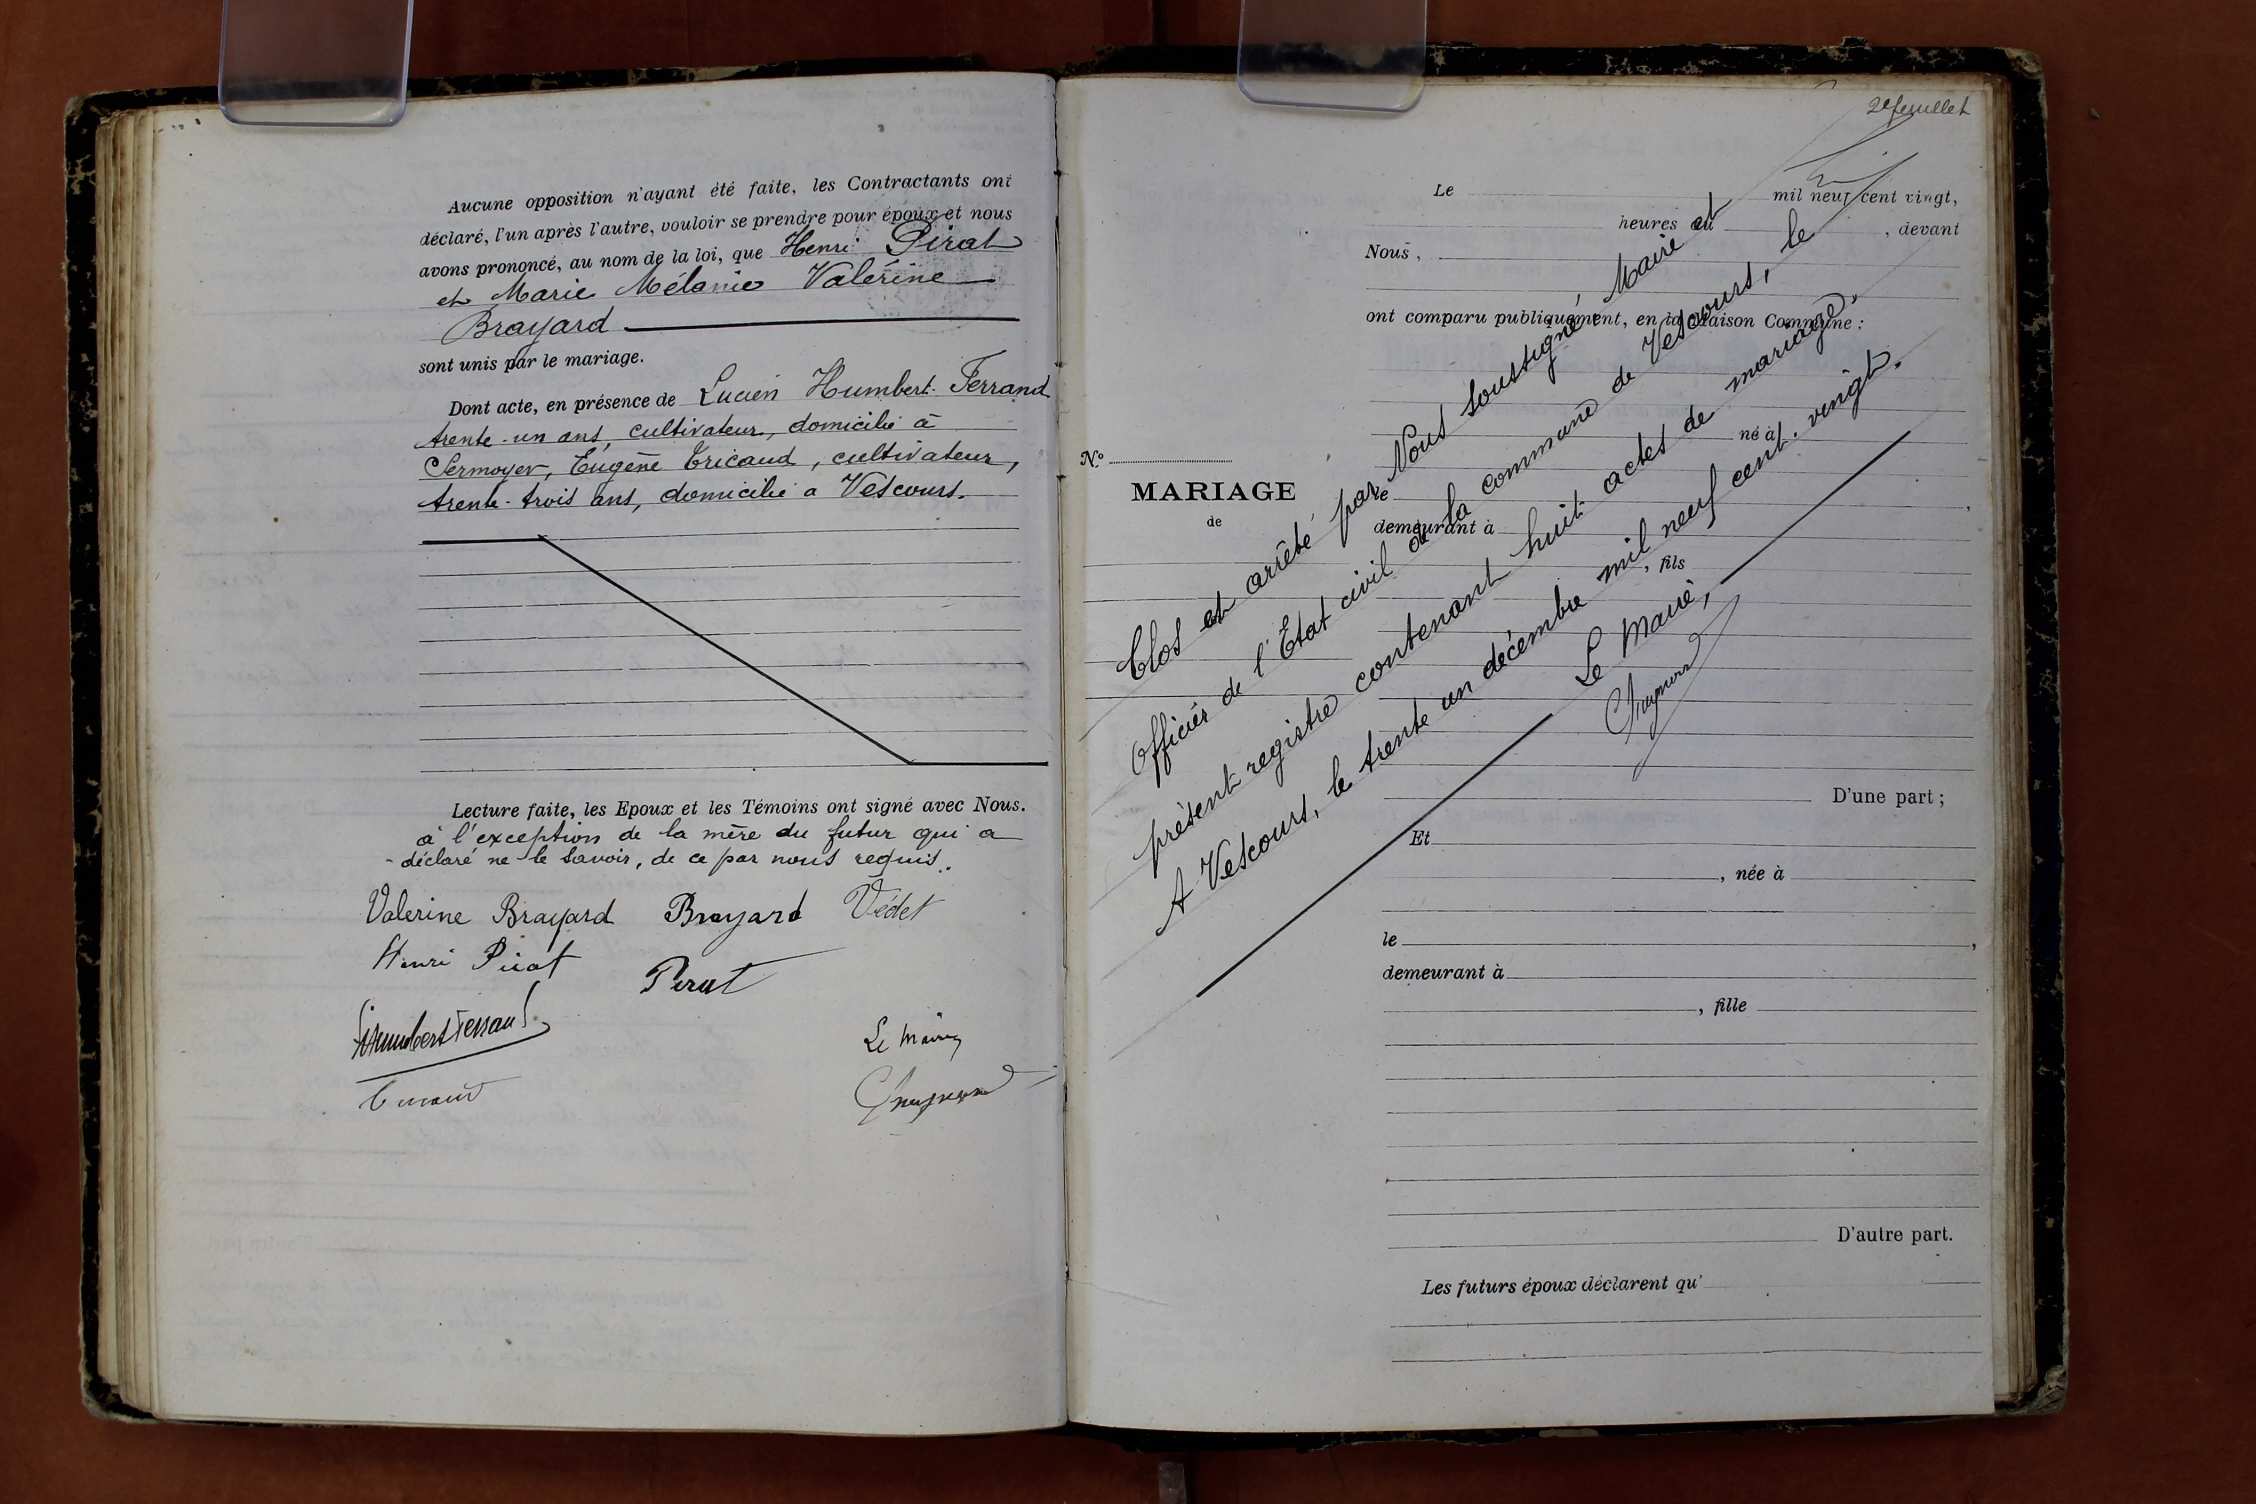 Aucune opposition n'ayant été faite, les Contractants ont
déclaré, l'un après l'autre, vouloir se prendre pour époux et nous
avons prononcé, au nom de la loi, que Henri Pirat
et Marie Mélanie Valérine
Brayard
sont unis par le mariage.
Dont acte, en présence de Lucien Humbert-Ferrand
trente-un ans, cultivateur, domicilié à
Sermoyer, Eugène Tricaud, cultivateur,
trente-trois ans, domicilié a Vescours.
Lecture faite, les Epoux et les Témoins ont signé avec Nous.
à l'exception de la mère du futur qui a
déclaré ne le savoir, de ce par nous requis.
Valerine Brayard Brayard Védet
Henri Pirat
Pirat
Humbert Ferrand
Le Maire
2e feuillet
Le mil neuf cent vingt,
heures du , devant
Nous,
ont comparu publiquement, en la Maison Commune :
né à
No
MARIAGE
de
le
demeurant à
, fils
Clos et arrêté par Nous soussigné Maire et
Officier de l'Etat civil de la commune de Vescours, le
présent registre contenant huit actes de mariage.
A Vescours, le trente un décembre mil neuf cent vingt.
Le Maire,
D'une part ;
Et
, née à
le ,
demeurant à
, fille
D'autre part.
Les futurs époux déclarent qu'